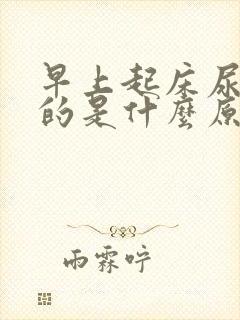 早上起床尿
的是什麼原
雨霖咛